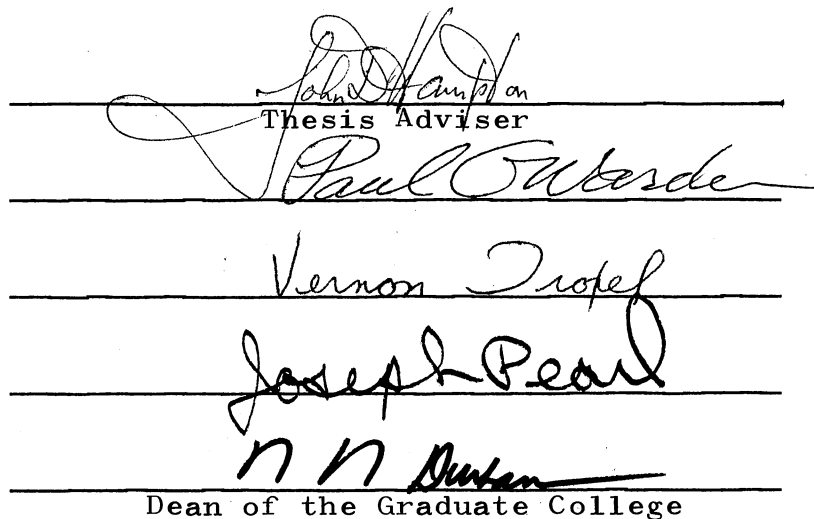 John D Hampton
Thesis Adviser
Paul G Warde
Vernon Tropel
Joseph Pearl
N N Durham
Dean of the Graduate College